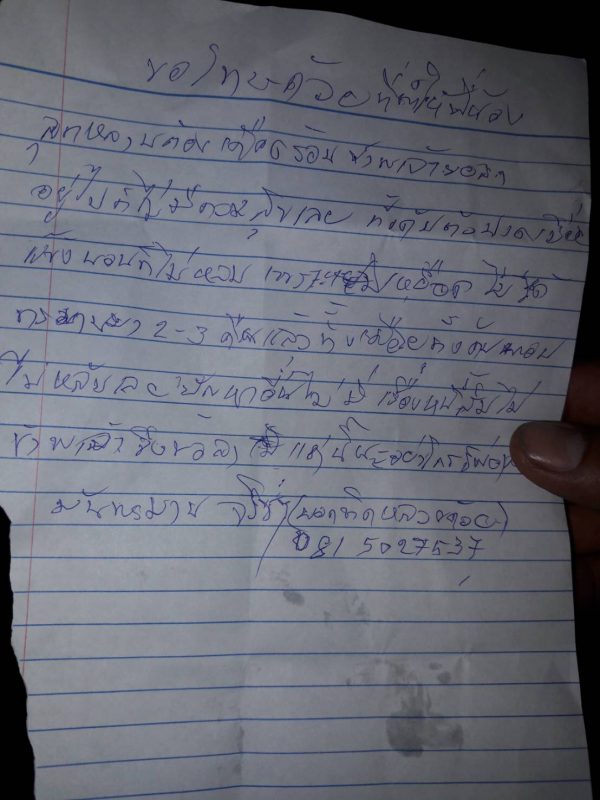 ขอโทษด้วยที่ทำให้พี่น้อง
ลูกหลานต้องเดือดร้อน ข้าพเจ้าขอลา
อยู่ไปก็ไม่มีความสุขเลย ทั้ง
นอนก็ไม่หลับ เพราะ ไม่ได้
ทรมานมา 2-3 คืนแล้วทั้งเหนื่อยทั้ง นอน
ไม่หลับเลย ปัญหาอื่นไม่มี เรื่องหนี้สินไม่
ข้าพเจ้าจึงขอลา แค่นี้นะอย่าโกรธพ่อ
มันทรมาน จริงๆ
081 5027537